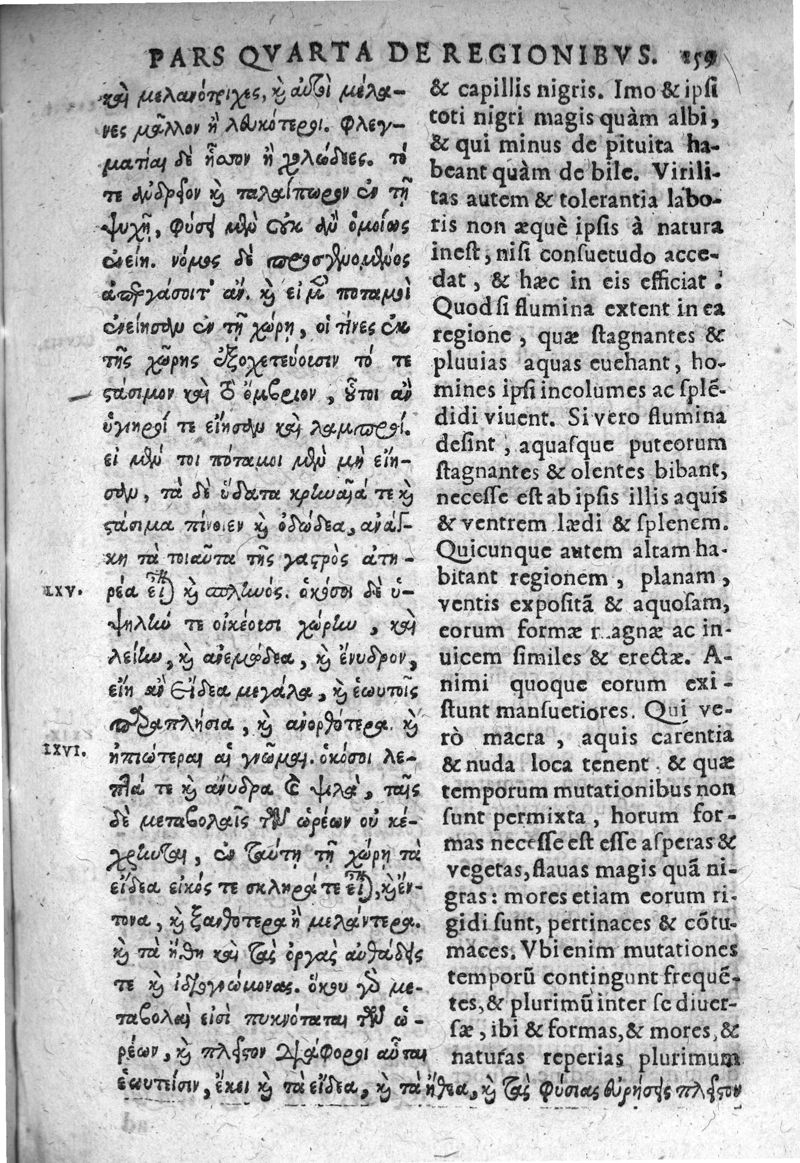 PARS QVARTA DE REGIONIBVS. 159
καὶ μελανότριχες, καὶ αὐτοὶ μέλα-
νες μᾶλλον ἢ λευκότεροι. Φλεγ-
ματίαι δὲ ἧσσον ἢ χολώδεες. τό
τε ἀνδρεῖον καὶ ταλαίπωρον ἐν τῇ
ψυχῇ, φύσει μὲν οὐκ ἂν ὁμοίως
ἐνείη. νόμος δὲ προσγενόμενος
ἀπεργάσοιτ' ἄν. καὶ εἰ μὲν ποταμοὶ
ἐνείησαν ἐν τῇ χώρῃ, οἵ τινες ἐκ
τῆς χώρης ἐξοχετεύουσιν τό τε
στάσιμον καὶ τὸ ὄμβριον, οὗτοι ἂν
ὑγιηροί τε εἴησαν καὶ λαμπροί.
εἰ μέν τοι πόταμοι μὲν μὴ εἴη-
σαν, τὰ δὲ ὕδατα κρηναῖά τε καὶ
στάσιμα πίνοιεν καὶ ὀδώδεα, ἀνάγ-
κη τὰ τοιαῦτα τῆς γαστρὸς ἀτη-
LXV. ρέα εἶναι καὶ σπληνός. ὁκόσοι δὲ ὑ-
ψηλήν τε οἰκέουσι χώρην, καὶ
λείην, καὶ ἀνεμώδεα, καὶ ἔνυδρον,
εἴη ἂν εἴδεα μεγάλα, καὶ ἑωυτοῖς
παραπλήσια, καὶ ἀνορθότερα καὶ
LXVI. ἠπιώτεραι αἱ γνῶμαι. ὁκόσοι λε-
πτά τε καὶ ἄνυδρα καὶ ψιλὰ, ταῖς
δὲ μεταβολαῖς τῶν ὡρέων οὐ κέ-
χρηνται, ἐν ταύτῃ τῇ χώρῃ τὰ
εἴδεα εἰκός τε σκληρά τε εἶναι, καὶ ἔν-
τονα, καὶ ξανθότερα ἢ μελάντερα.
καὶ τὰ ἤθη καὶ τὰς ὀργὰς αὐθάδεις
τε καὶ ἰδιογνώμονας. ὅκου γὰρ με-
ταβολαὶ εἰσὶ πυκνόταται τῶν ὡ-
ρέων, καὶ πλεῖστον διάφοροι αὗται
ἑωυτεῖσιν, ἐκεῖ καὶ τὰ εἴδεα, καὶ τὰ ἤθεα, καὶ τὰς φύσιας εὑρήσεις πλεῖστον
& capillis nigris. Imo & ipsi
toti nigri magis quàm albi,
& qui minus de pituita ha-
beant quàm de bile. Virili-
tas autem & tolerantia labo-
ris non æquè ipsis à natura
inest, nisi consuetudo acce-
dat, & hæc in eis efficiat.
Quod si flumina extent in ea
regione, quæ stagnantes &
pluuias aquas euehant, ho-
mines ipsi incolumes ac splē-
didi viuent. Si vero flumina
desint, aquasque puteorum
stagnantes & olentes bibant,
necesse est ab ipsis illis aquis
& ventrem lædi & splenem.
Quicunque autem altam ha-
bitant regionem, planam,
ventis expositā & aquosam,
eorum formæ magnæ ac in-
uicem similes & erectæ. A-
nimi quoque eorum exi-
stunt mansuetiores. Qui ve-
rò macra, aquis carentia
& nuda loca tenent, & quæ
temporum mutationibus non
sunt permixta, horum for-
mas necesse est esse asperas &
vegetas, flauas magis quā ni-
gras: mores etiam eorum ri-
gidi sunt, pertinaces & cōtu-
maces. Vbi enim mutationes
temporū contingunt frequē-
tes, & plurimū inter se diuer-
sæ, ibi & formas, & mores, &
naturas reperias plurimum